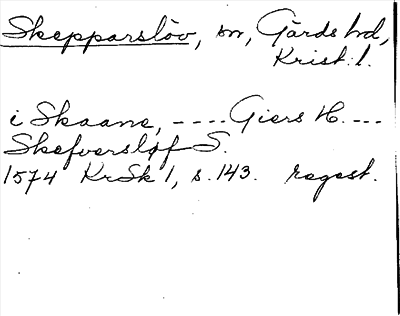 Skepparslöv, sn, Gärds hd,
Krist. l.
i Skaane, ---- Giers H. ---
Skefversløf S.
1574 KrSk 1, s. 143. regest.